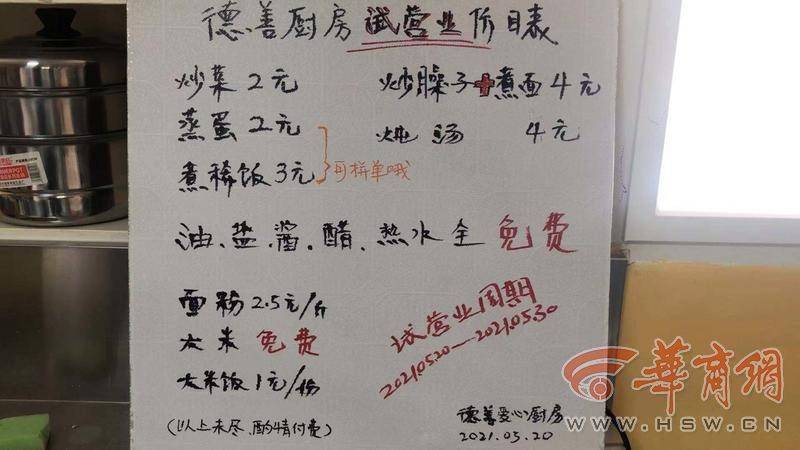 德善厨房试营业价目表
炒菜2元 炒臊子+煮面4元
蒸蛋2元 炖汤 4元
煮稀饭3元 可拼单哦
油、盐、酱、醋、热水全免费
面粉2.5元/斤
大米 免费
大米饭1元/份
试营业周期
2021.05.20—2021.05.30
(以上未尽、酌情付费)
德善爱心厨房
2021.05.20
華商網
WWW.HSW.CN